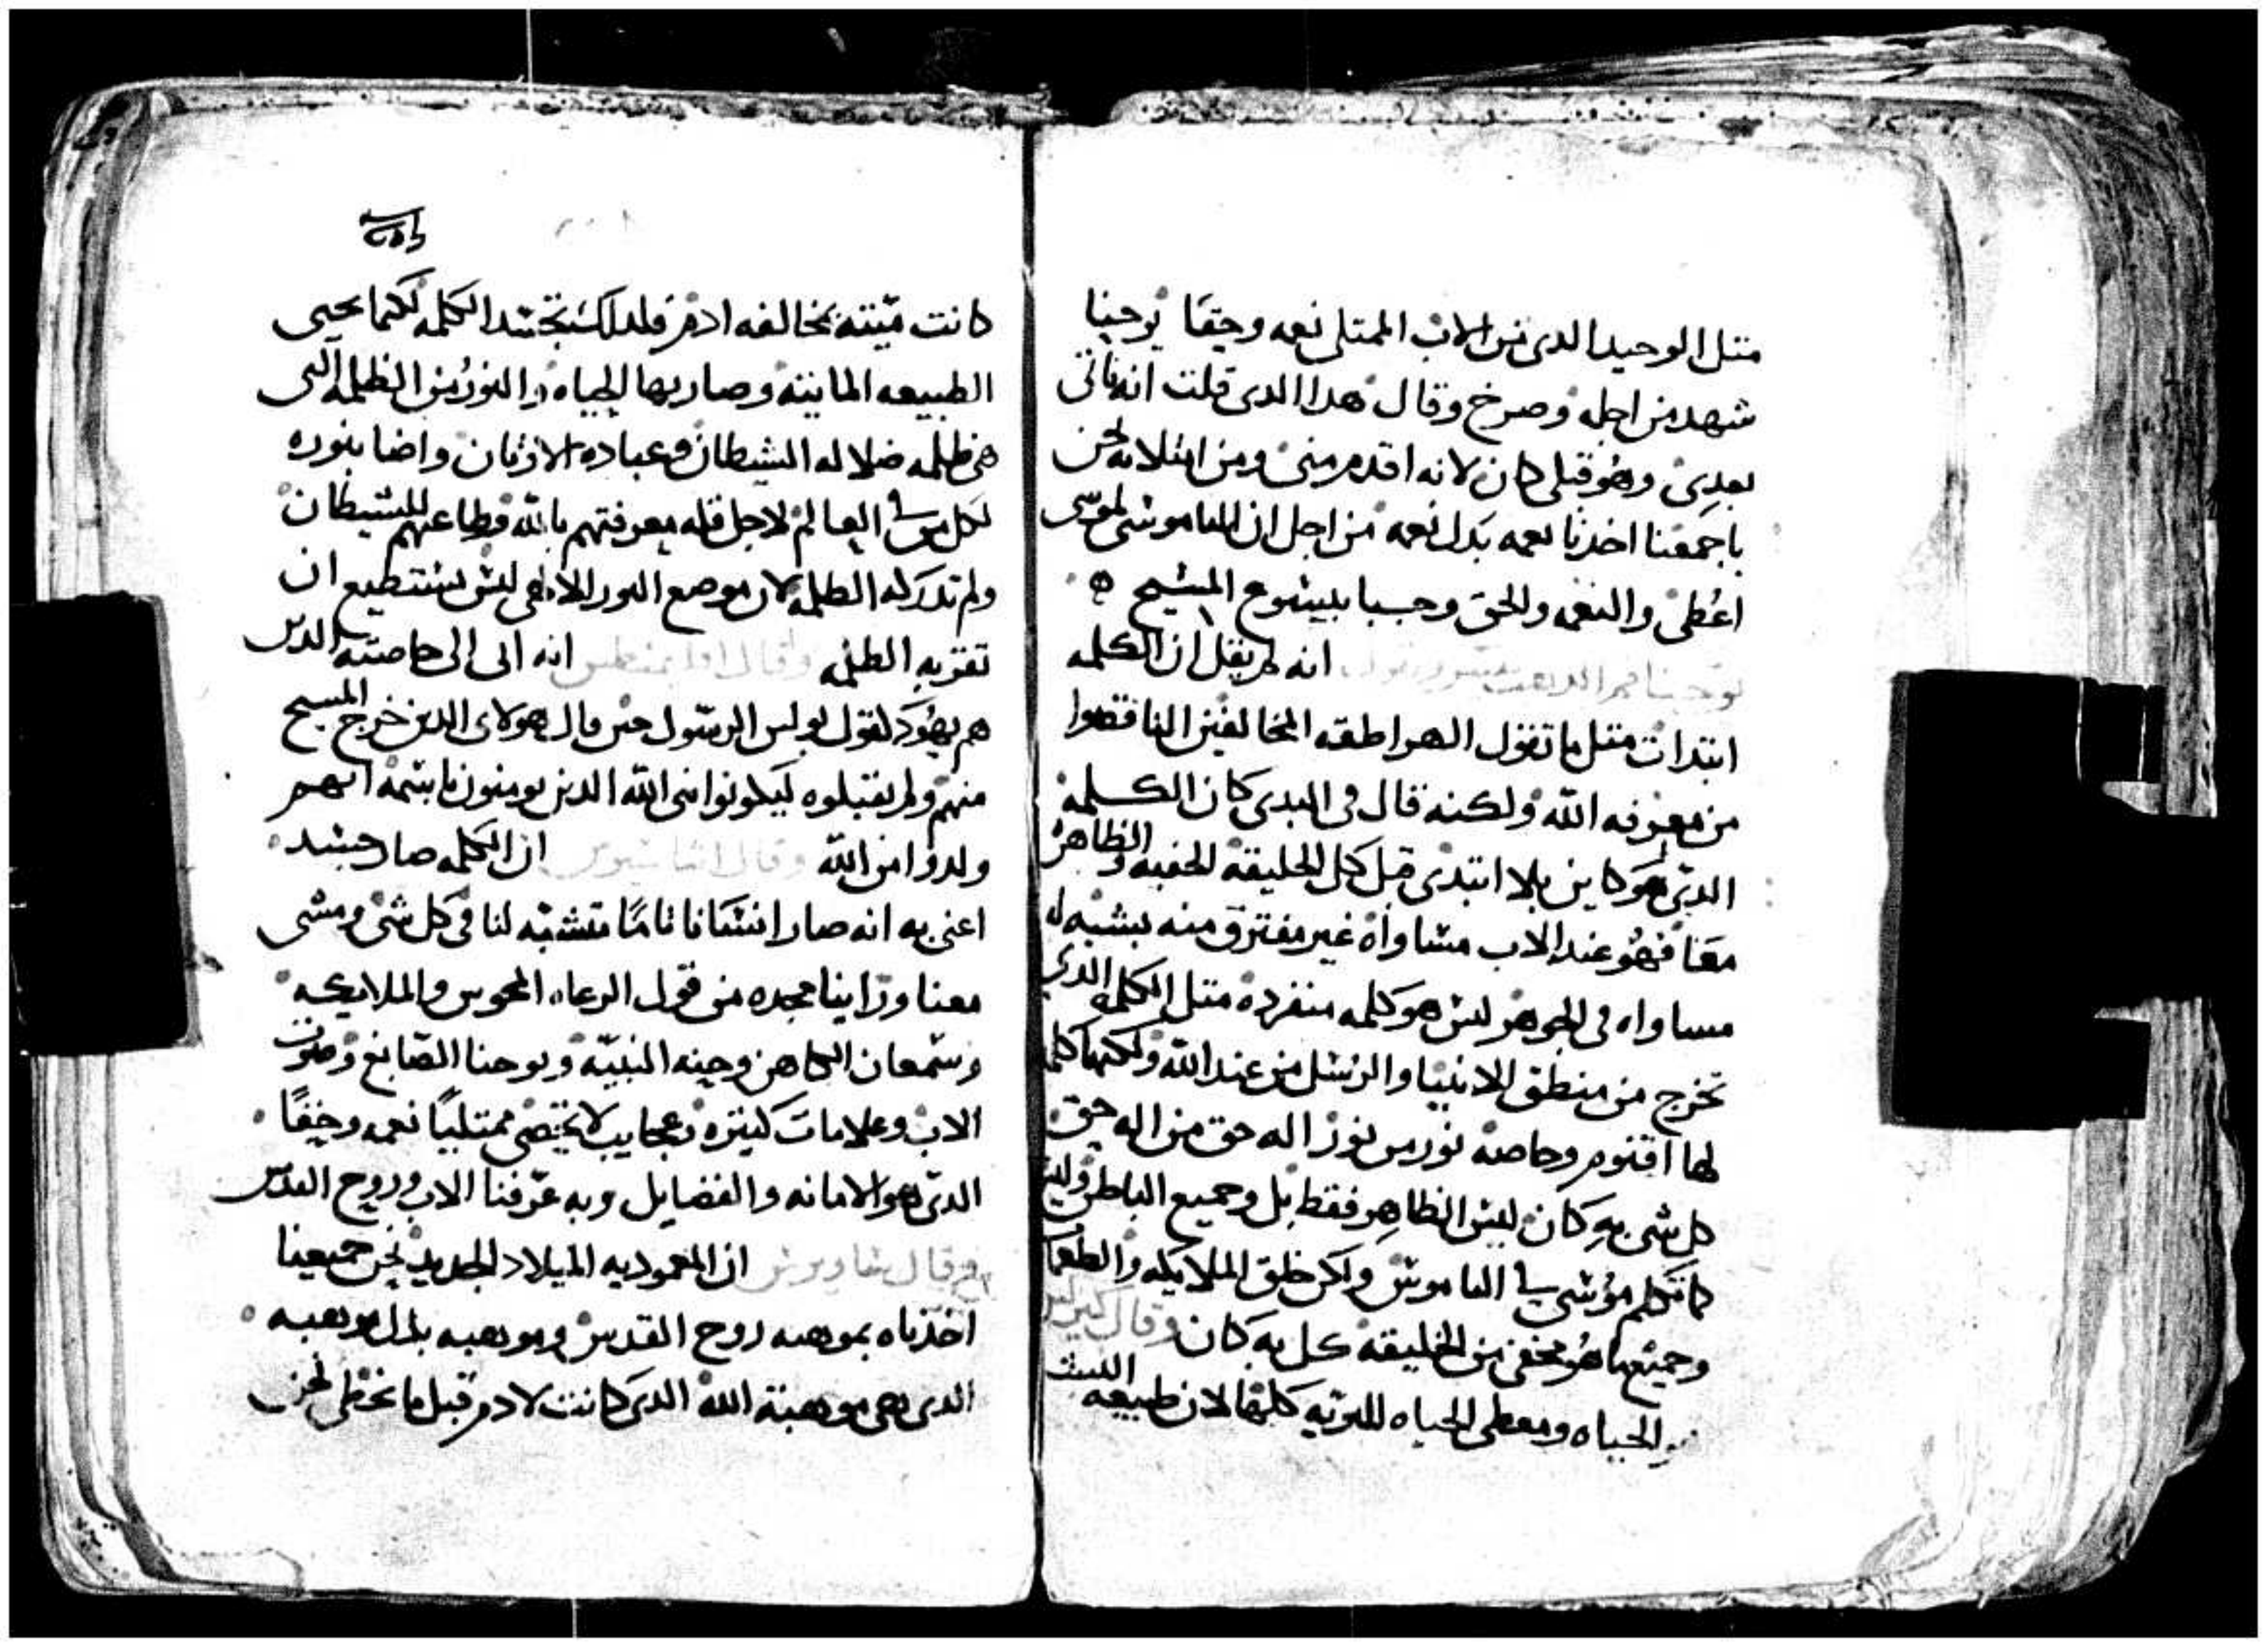 متل الوحيد الدى من الاب الممتلى نعمه وحقا يوحنا
شهد من اجله وصرخ وقال هدا الدى قلت انه ياتى
بعدى وهو قبلى كان لانه اقدم منى ومن امتلايه نحن
باجمعنا اخدنا نعمه بدل نعمه من اجل ان الناموس لموسى
اعطى والنعمه والحق وجبا بيسوع المسيح
يوحنا فم الدهب يفسر ويقول انه لم يقل ان الكلمه
ابتدات متل ما تقول الهراطقه المخالفين الناقصوا
من معرفه الله ولكنه قال فى البدى كان الكلمه
الدى هو كاين بلا ابتدى قبل كل الخليقه الخفيه والظاهر
معنا فهو عند الاب مساواه غير مفترق منه يشبه له
مساواه فى الجوهر ليس هو كلمه منفرده متل الكلمه الدى
تخرج من منطق الانبيا والرسل من عند الله ولكنها كلمه
لها اقنوم وخاصه نور من نور اله حق من اله حق
كل شى به كان ليس الظاهر فقط بل وجميع الباطن وليس
كما تكلم موسى فى الناموس ولكن خلق الملايكه والطغمات
وجميع ما هو مخفى من الخليقه كل به كان وقال كيرلس
الحياه ومعطى الحياه للبريه كلها لان طبيعه
كانت ميته بمخالفه ادم فلدلك تجسد الكلمه لكيما يحيى
الطبيعه المايته وصار بها الحياه والنور من الظلمه التى
هى ظلمه ضلاله الشيطان وعباده الاوتان واضا بنوره
لكل من فى العالم لاجل قله معرفتهم بالله وطاعتهم للشيطان
ولم تدركه الظلمه لان موضع النور الالاهى ليس يستطيع ان
تقربه الظلمه وقال انه اتى الى خاصته الدين
هم يهود كقول بولس الرسول حين قال هولاى الدين خرج المسيح
منهم ولم يقبلوه ليكونوا بنى الله الدين يومنون باسمه انهم
ولدوا من الله وقال ان الكلمه صار جسد
اعنى به انه صار انسانا تاما متشبه لنا فى كل شى ومشى
معنا وراينا مجده من قول الرعاه المجوس والملايكه
وسمعان الكاهن وحنه النبيه ويوحنا الصابغ وصوت
الاب وعلامات كتيره وعجايب لا تحصى ممتليا نعمه وحقا
الدى هو الامانه والفضايل وبه عرفنا الاب وروح القدس
وقال ان المعموديه الميلاد الجديد نحن جميعنا
اخدناه بموهبه روح القدس وموهبه بدل موهبه
الدى هى موهبة الله الدى كانت لادم قبل ما تخطى نحن